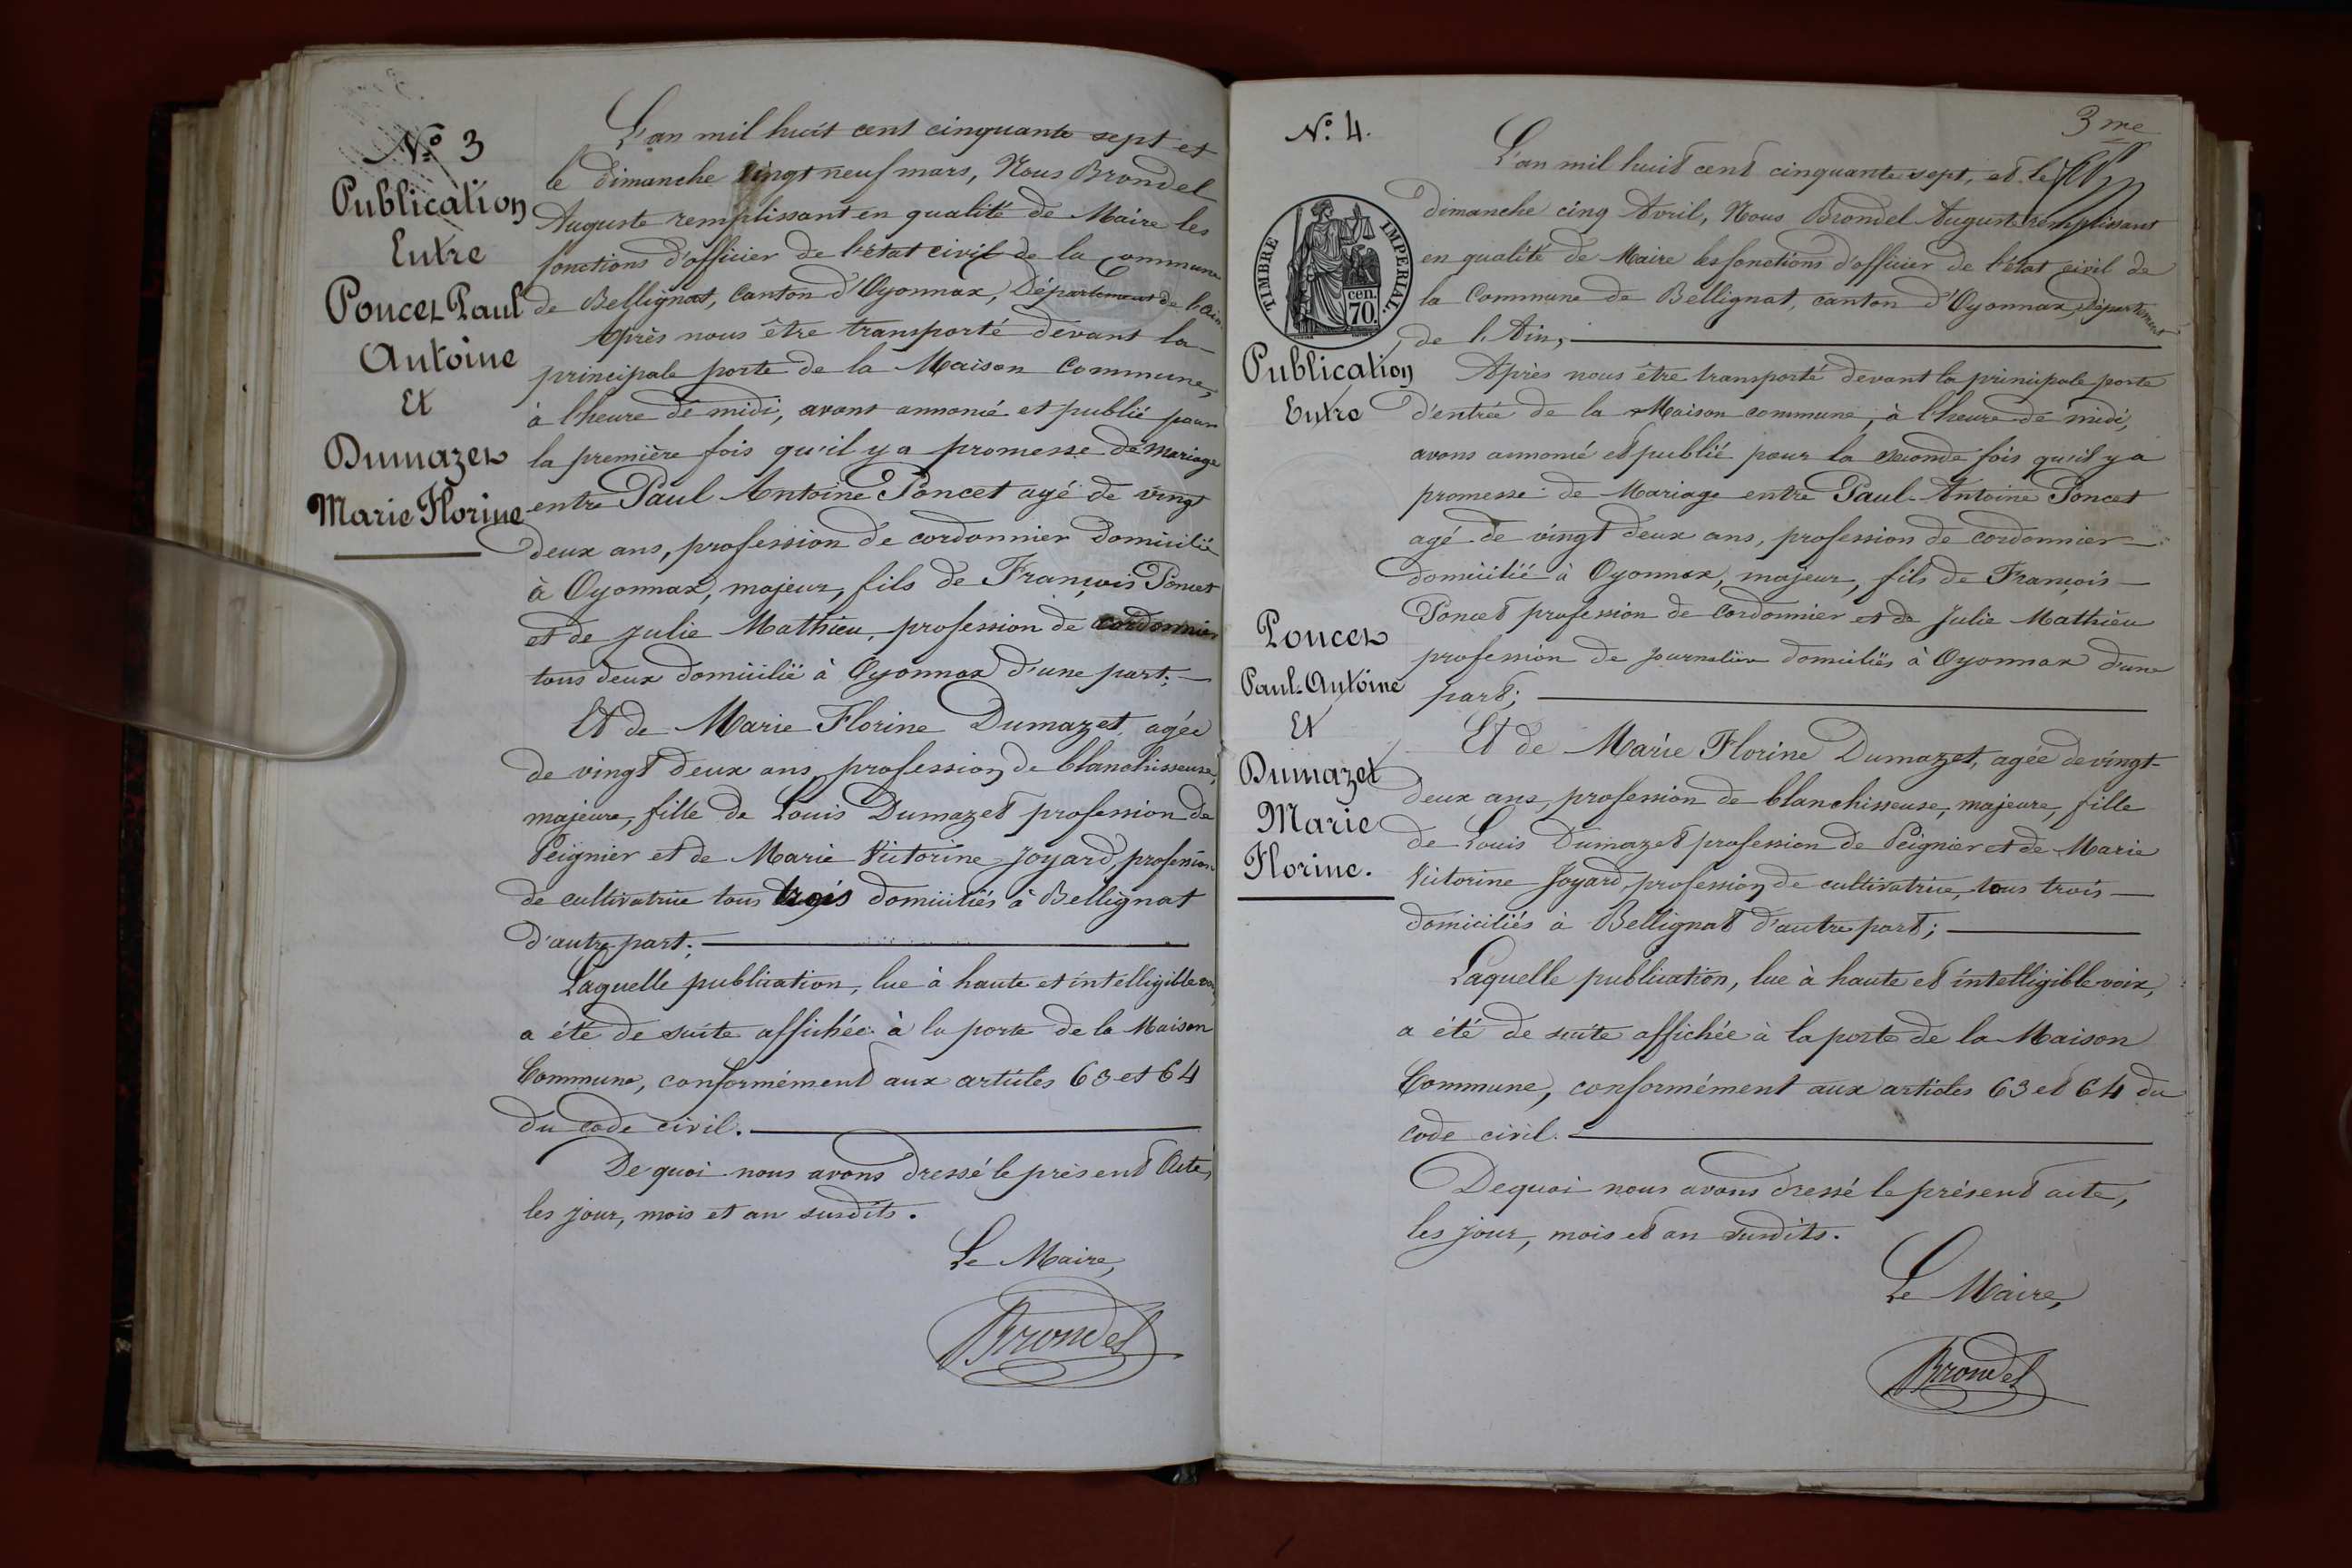 N.º 3
Publication
Entre
Poncet Paul
Antoine
Et
Dumazet
Marie Florine
L'an mil huit cent cinquante sept et
le dimanche vingt neuf mars, Nous Brondel
Auguste remplissant en qualité de Maire les
fonctions d'officier de l'état civil de la Commune
de Bellignat, canton d'Oyonnax, Département de l'Ain.
Après nous être transporté devant la
principale porte de la Maison Commune,
à l'heure de midi, avons annoncé et publié pour
la première fois qu'il y a promesse de mariage
entre Paul Antoine Poncet agé de vingt
deux ans, profession de cordonnier domicilié
à Oyonnax, majeur, fils de François Poncet
et de Julie Mathieu, profession de cordonnier
tous deux domicilié à Oyonnax d'une part;
Et de Marie Florine Dumazet, agée
de vingt deux ans, profession de blanchisseuse,
majeure, fille de Louis Dumazet profession de
Peignier et de Marie Victorine Joyard, profession
de cultivatrice tous trois domiciliés à Bellignat
d'autre part;
Laquelle publication, lue à haute et intelligible voix,
a été de suite affichée à la porte de la Maison
Commune, conformément aux articles 63 et 64
du code civil.
De quoi nous avons dressé le présent Acte,
les jour, mois et an susdits.
Le Maire,
Brondel
3me
N.º 4.
TIMBRE IMPERIAL.
cen.
70.
Publication
Entre
Poncet
Paul-Antoine
Et
Dumazet
Marie
Florine.
L'an mil huit cent cinquante sept, et le
dimanche cinq Avril, Nous Brondel Auguste remplissant
en qualité de Maire les fonctions d'officier de l'état civil de
la Commune de Bellignat, canton d'Oyonnax, département
de l'Ain,
Après nous être transporté devant la principale porte
d'entrée de la Maison commune, à l'heure de midi,
avons annoncé et publié pour la seconde fois qu'il y a
promesse de Mariage entre Paul-Antoine Poncet
agé de vingt deux ans, profession de cordonnier
domicilié à Oyonnax, majeur, fils de François
Poncet profession de Cordonnier et de Julie Mathieu
profession de Journalière domiciliés à Oyonnax d'une
part;
Et de Marie Florine Dumazet, agée de vingt-
deux ans, profession de blanchisseuse, majeure, fille
de Louis Dumazet profession de Peignier et de Marie
Victorine Joyard, profession de cultivatrice, tous trois
domiciliés à Bellignat d'autre part;
Laquelle publication, lue à haute et intelligible voix,
a été de suite affichée à la porte de la Maison
Commune, conformément aux articles 63 et 64 du
code civil.
De quoi nous avons dressé le présent acte,
les jour, mois et an susdits.
Le Maire,
Brondel